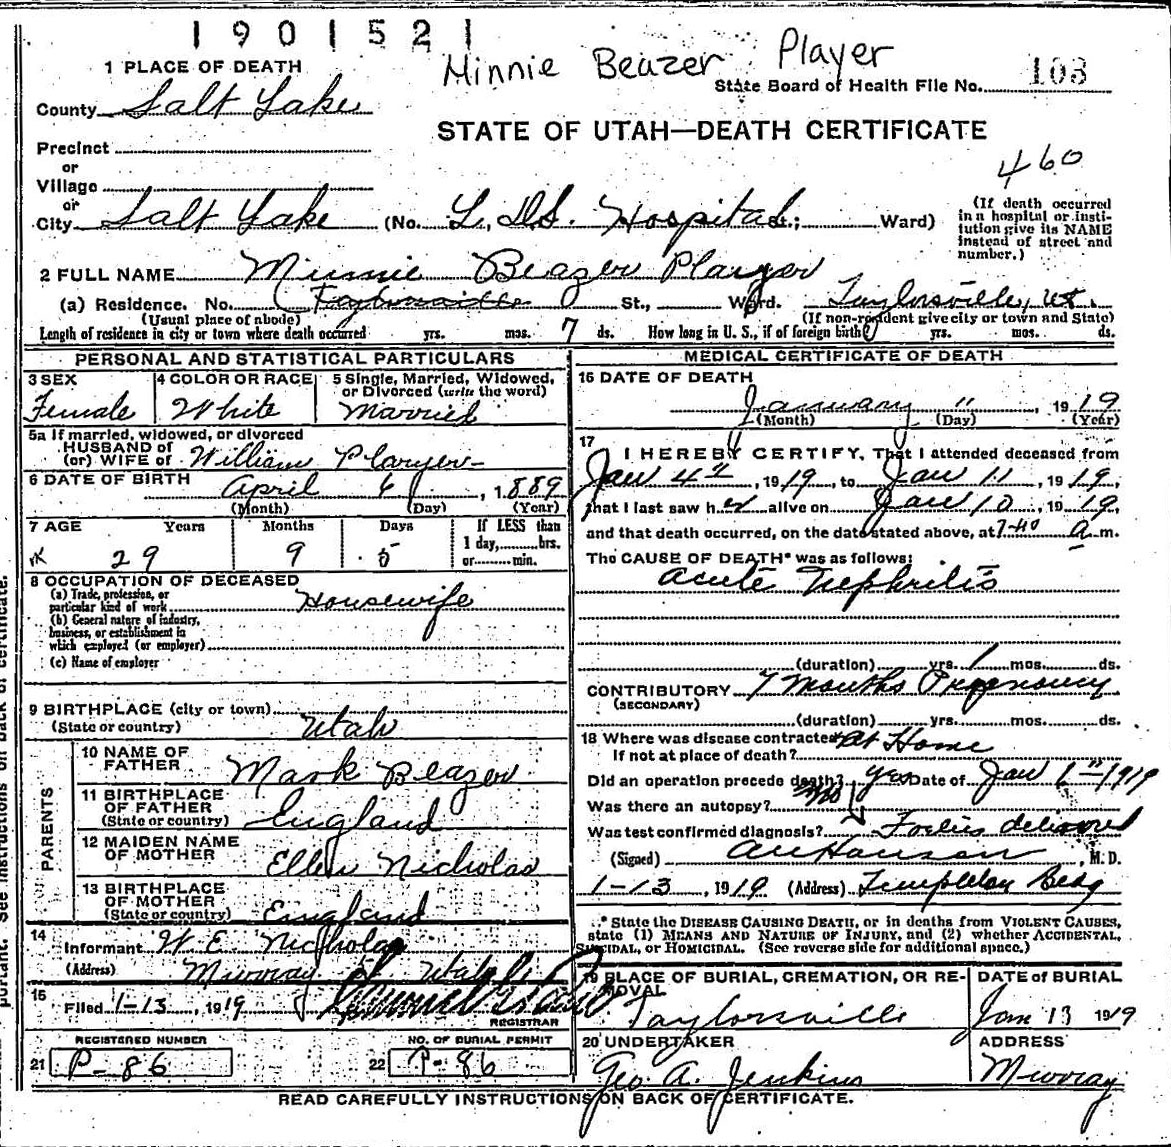 1901521
Minnie Beazer Player
1 PLACE OF DEATH
State Board of Health File No. 103
County Salt Lake
STATE OF UTAH—DEATH CERTIFICATE
Precinct
or
Village
460
or
City Salt Lake (No. L. D.S. Hospital St.; Ward)
(If death occurred
in a hospital or insti-
tution give its NAME
instead of street and
number.)
2 FULL NAME Minnie Beazer Player
(a) Residence. No. (Taylorsville St., Ward. Taylorsville, Ut.
(Usual place of abode) (If non-resident give city or town and State)
Length of residence in city or town where death occurred yrs. mos. 7 ds. How long in U. S., if of foreign birth? yrs. mos. ds.
PERSONAL AND STATISTICAL PARTICULARS
3 SEX
Female
4 COLOR OR RACE
White
5 Single, Married, Widowed,
or Divorced (write the word)
Married
5a If married, widowed, or divorced
HUSBAND of
(or) WIFE of William Player
6 DATE OF BIRTH April 6, 1889
(Month) (Day) (Year)
7 AGE Years Months Days If LESS than
1 day, hrs.
or min.
29 9 5
8 OCCUPATION OF DECEASED
(a) Trade, profession, or
particular kind of work Housewife
(b) General nature of industry,
business, or establishment in
which employed (or employer)
(c) Name of employer
9 BIRTHPLACE (city or town)
(State or country) Utah
PARENTS
10 NAME OF
FATHER Mark Beazer
11 BIRTHPLACE
OF FATHER
(State or country) England
12 MAIDEN NAME
OF MOTHER Ellen Nicholas
13 BIRTHPLACE
OF MOTHER
(State or country) England
14
Informant W. E. Nicholas
(Address) Murray Utah
15
Filed 1-13, 1919
REGISTRAR
REGISTERED NUMBER
21 P-86
NO. OF BURIAL PERMIT
22 P-86
MEDICAL CERTIFICATE OF DEATH
16 DATE OF DEATH
January 11, 1919
(Month) (Day) (Year)
17
I HEREBY CERTIFY, That I attended deceased from
Jan 4th, 1919, to Jan 11, 1919,
that I last saw her alive on Jan 10, 1919,
and that death occurred, on the date stated above, at 7-40 a m.
The CAUSE OF DEATH* was as follows:
Acute Nephritis
(duration) yrs. 1 mos. ds.
CONTRIBUTORY 7 Months Pregnancy
(SECONDARY)
(duration) yrs. mos. ds.
18 Where was disease contracted At Home
If not at place of death?
Did an operation precede death? Yes Date of Jan 1919
Was there an autopsy? No
Was test confirmed diagnosis? Foetus delivered
(Signed) Hanson, M. D.
1-13, 1919 (Address) Templeton Bldg
* State the DISEASE CAUSING DEATH, or in deaths from VIOLENT CAUSES,
state (1) MEANS AND NATURE OF INJURY, and (2) whether ACCIDENTAL,
SUICIDAL, or HOMICIDAL. (See reverse side for additional space.)
19 PLACE OF BURIAL, CREMATION, OR RE-
MOVAL
Taylorsville
DATE of BURIAL
Jan 13 1919
20 UNDERTAKER
Geo. A. Jenkins
ADDRESS
Murray
READ CAREFULLY INSTRUCTIONS ON BACK OF CERTIFICATE.
portant. See instructions on back of certificate.